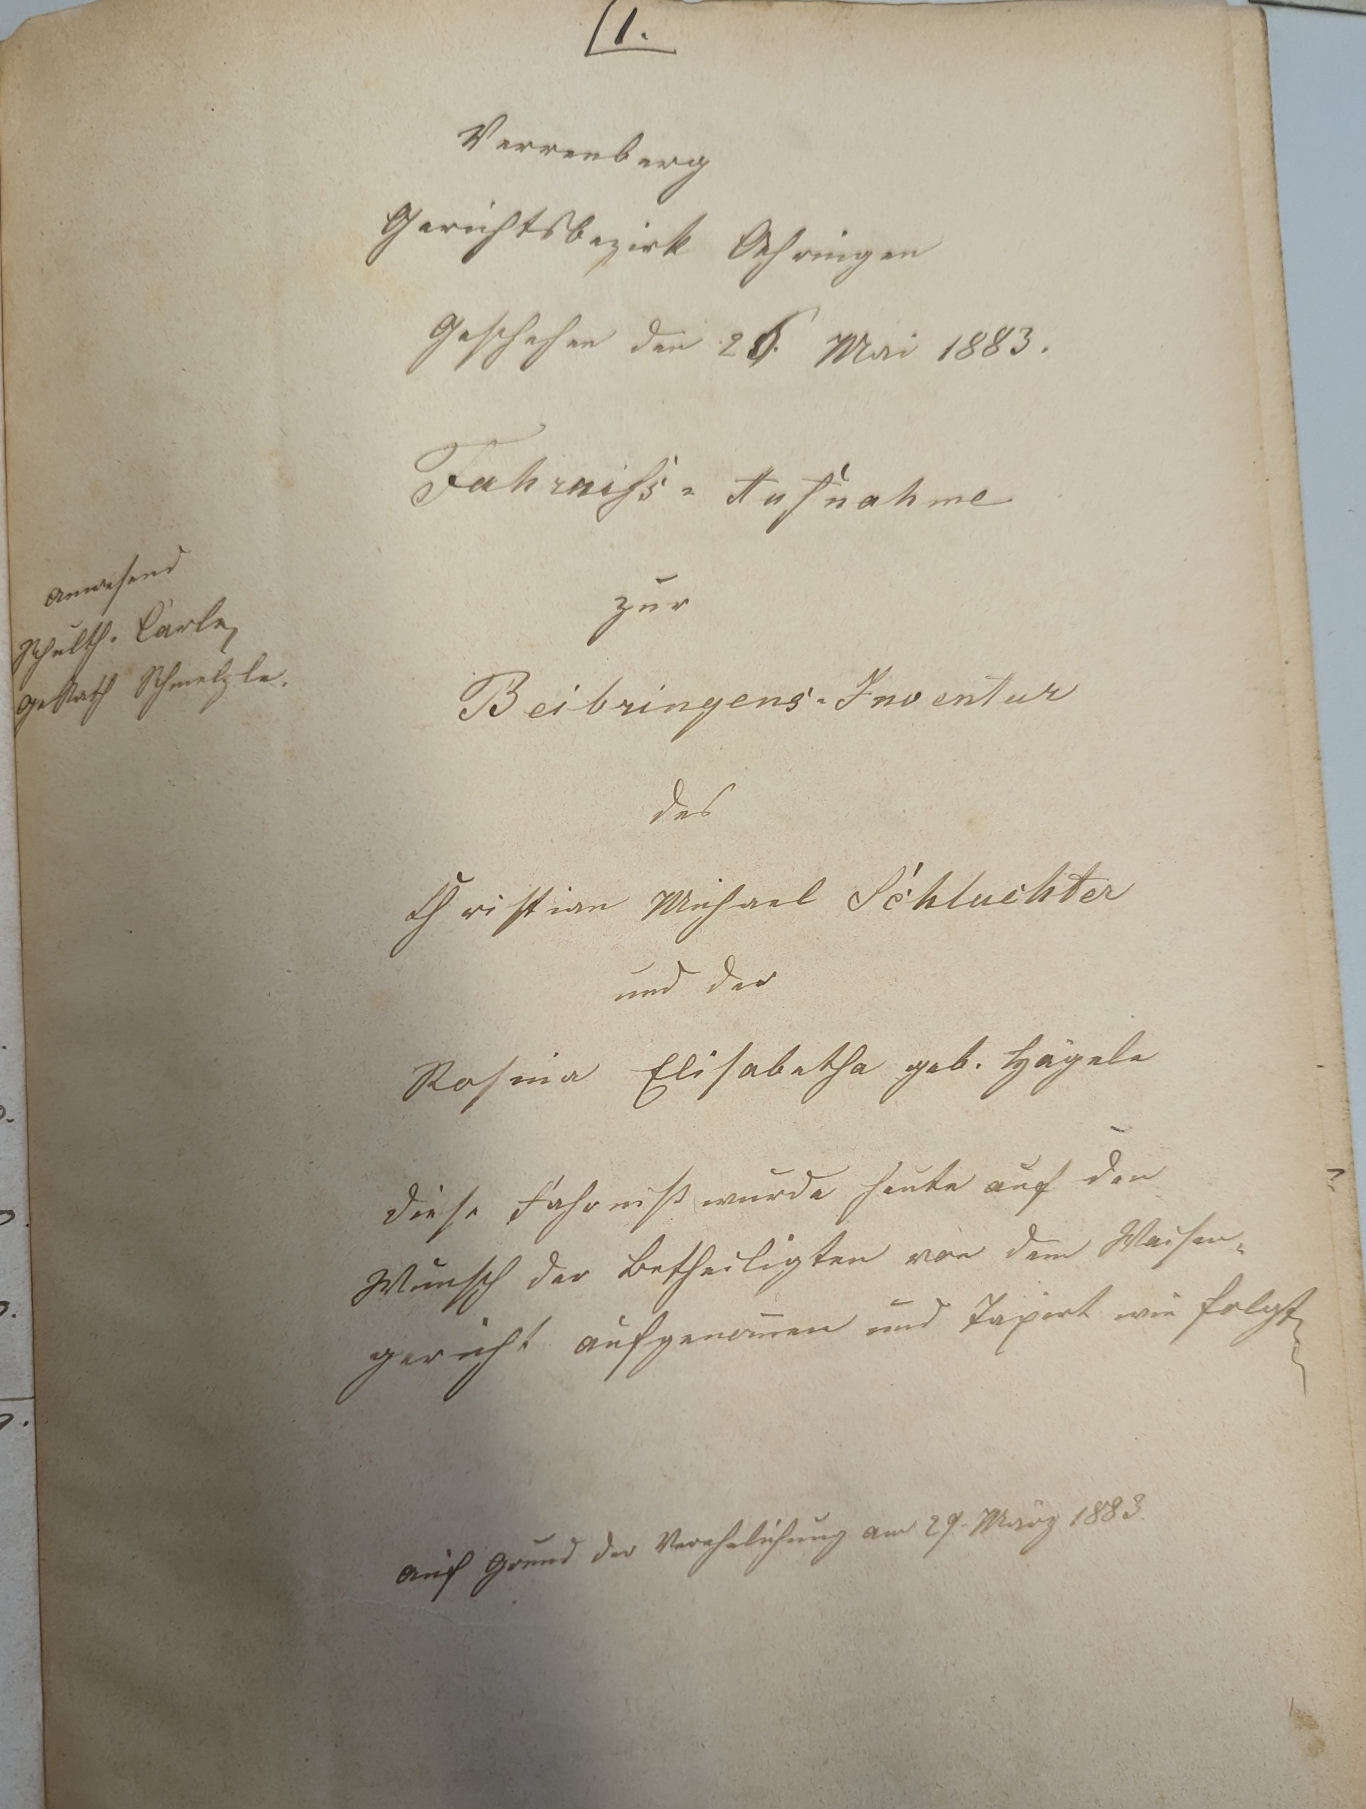 1.
Verrenberg
Gerichtsbezirk Oehringen
Geschehen den 26. Mai 1883.
Fahrniss-Aufnahme
zur
Anwesend
Schulth. Carle,
GeRath Schmelzle.
Beibringens-Inventur
des
Christian Michael Schluchter
und der
Rosina Elisabetha geb. Hägele
Diese Fahrniß wurde heute auf den
Wunsch der Betheiligten von dem Waisen-
gericht aufgenomen und Taxirt wie folgt
auf Grund der Verehelichung am 29. März 1883.